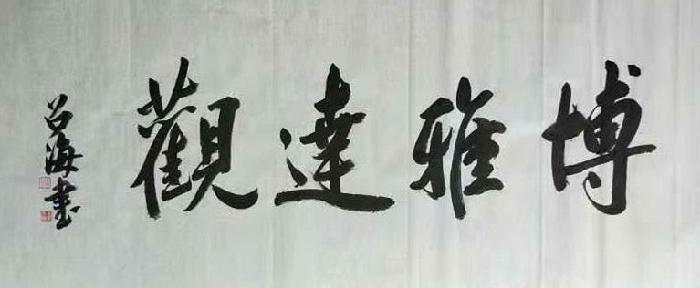 博雅達觀
吕海書